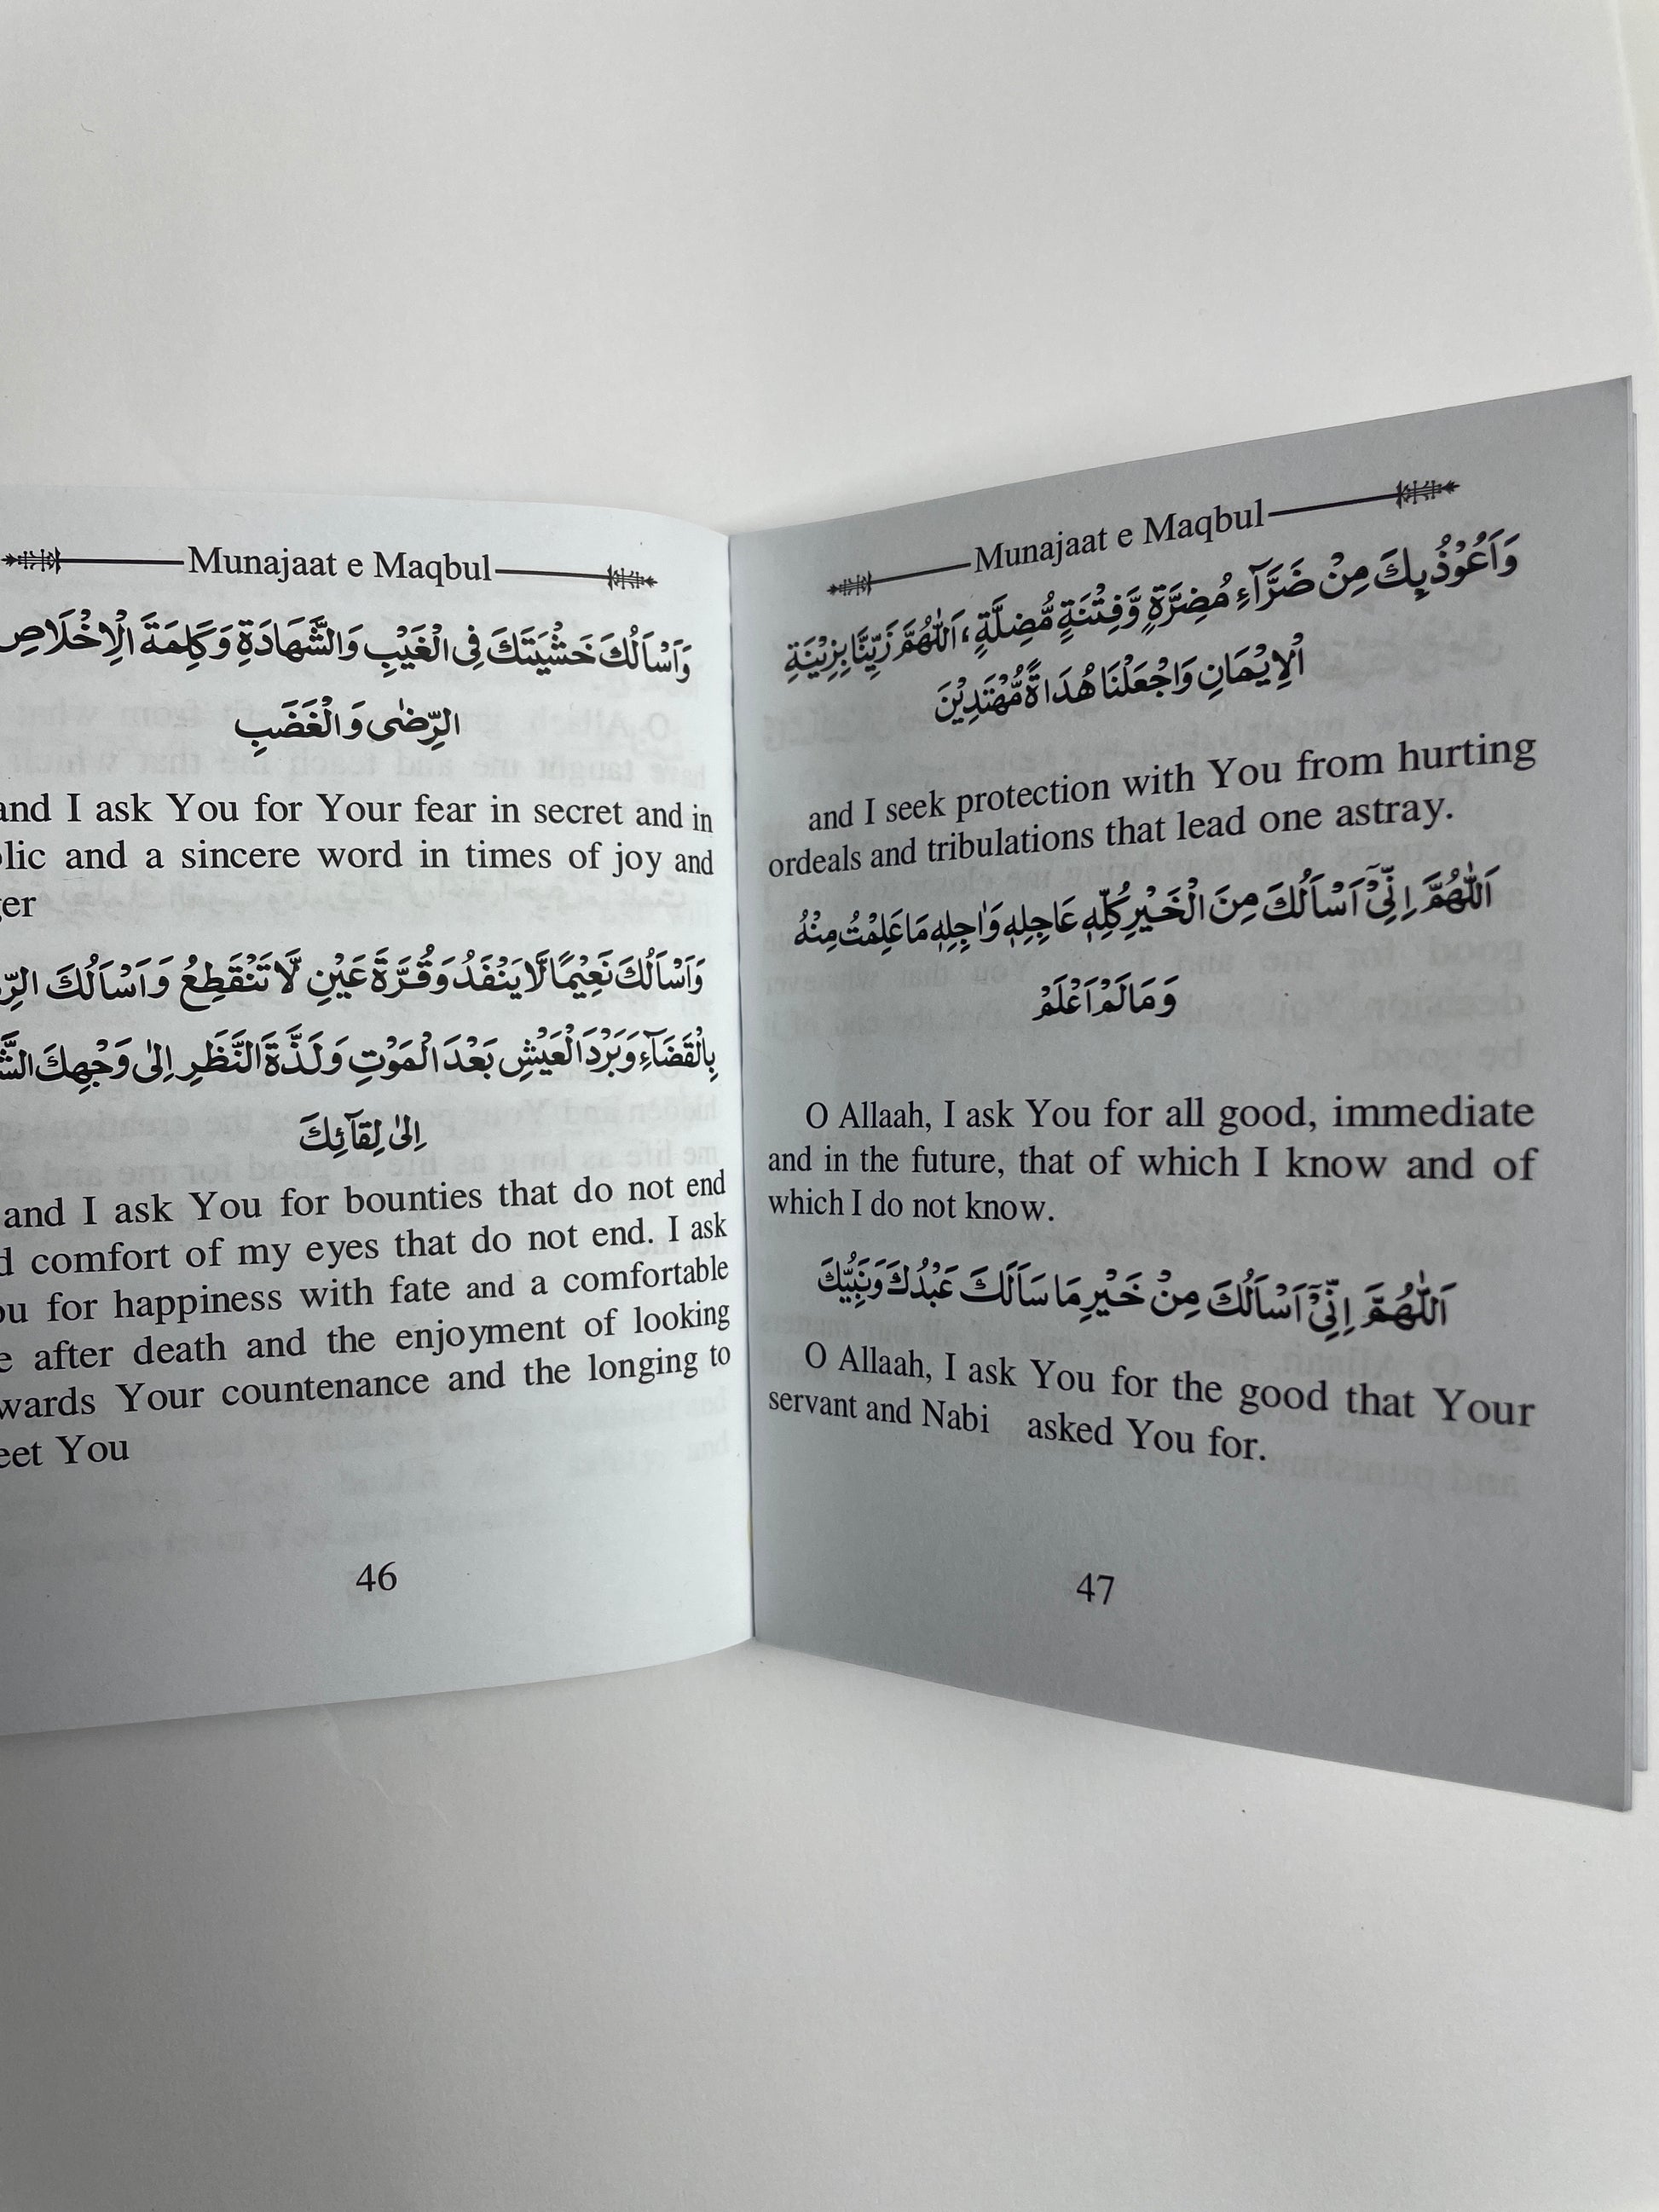 Munajaat e Maqbul
وَاَسْاَلُكَ خَشْيَتَكَ فِى الْغَيْبِ وَالشَّهَادَةِ وَكَلِمَةَ الْاِخْلَاصِ
الرِّضٰى وَالْغَضَبِ
and I ask You for Your fear in secret and in
lic and a sincere word in times of joy and
er
وَاَسْاَلُكَ نَعِيْمًا لَّا يَنْفَدُ وَقُرَّةَ عَيْنٍ لَّا تَنْقَطِعُ وَاَسْاَلُكَ
بِالْقَضَآءِ وَبَرْدَ الْعَيْشِ بَعْدَ الْمَوْتِ وَلَذَّةَ النَّظَرِ اِلٰى وَجْهِكَ
اِلٰى لِقَآئِكَ
and I ask You for bounties that do not end
d comfort of my eyes that do not end. I ask
ou for happiness with fate and a comfortable
e after death and the enjoyment of looking
wards Your countenance and the longing to
eet You
46
Munajaat e Maqbul
وَاَعُوْذُ بِكَ مِنْ ضَرَّآءِ مُضِرَّةٍ وَّفِتْنَةٍ مُّضِلَّةٍ، اَللّٰهُمَّ زَيِّنَّا بِزِيْنَةِ
الْاِيْمَانِ وَاجْعَلْنَا هُدَاةً مُّهْتَدِيْنَ
and I seek protection with You from hurting
ordeals and tribulations that lead one astray.
اَللّٰهُمَّ اِنِّيْٓ اَسْاَلُكَ مِنَ الْخَيْرِ كُلِّهٖ عَاجِلِهٖ وَاٰجِلِهٖ مَا عَلِمْتُ مِنْهُ
وَمَا لَمْ اَعْلَمْ
O Allaah, I ask You for all good, immediate
and in the future, that of which I know and of
which I do not know.
اَللّٰهُمَّ اِنِّيْٓ اَسْاَلُكَ مِنْ خَيْرِ مَا سَاَلَكَ عَبْدُكَ وَنَبِيُّكَ
O Allaah, I ask You for the good that Your
servant and Nabi asked You for.
47